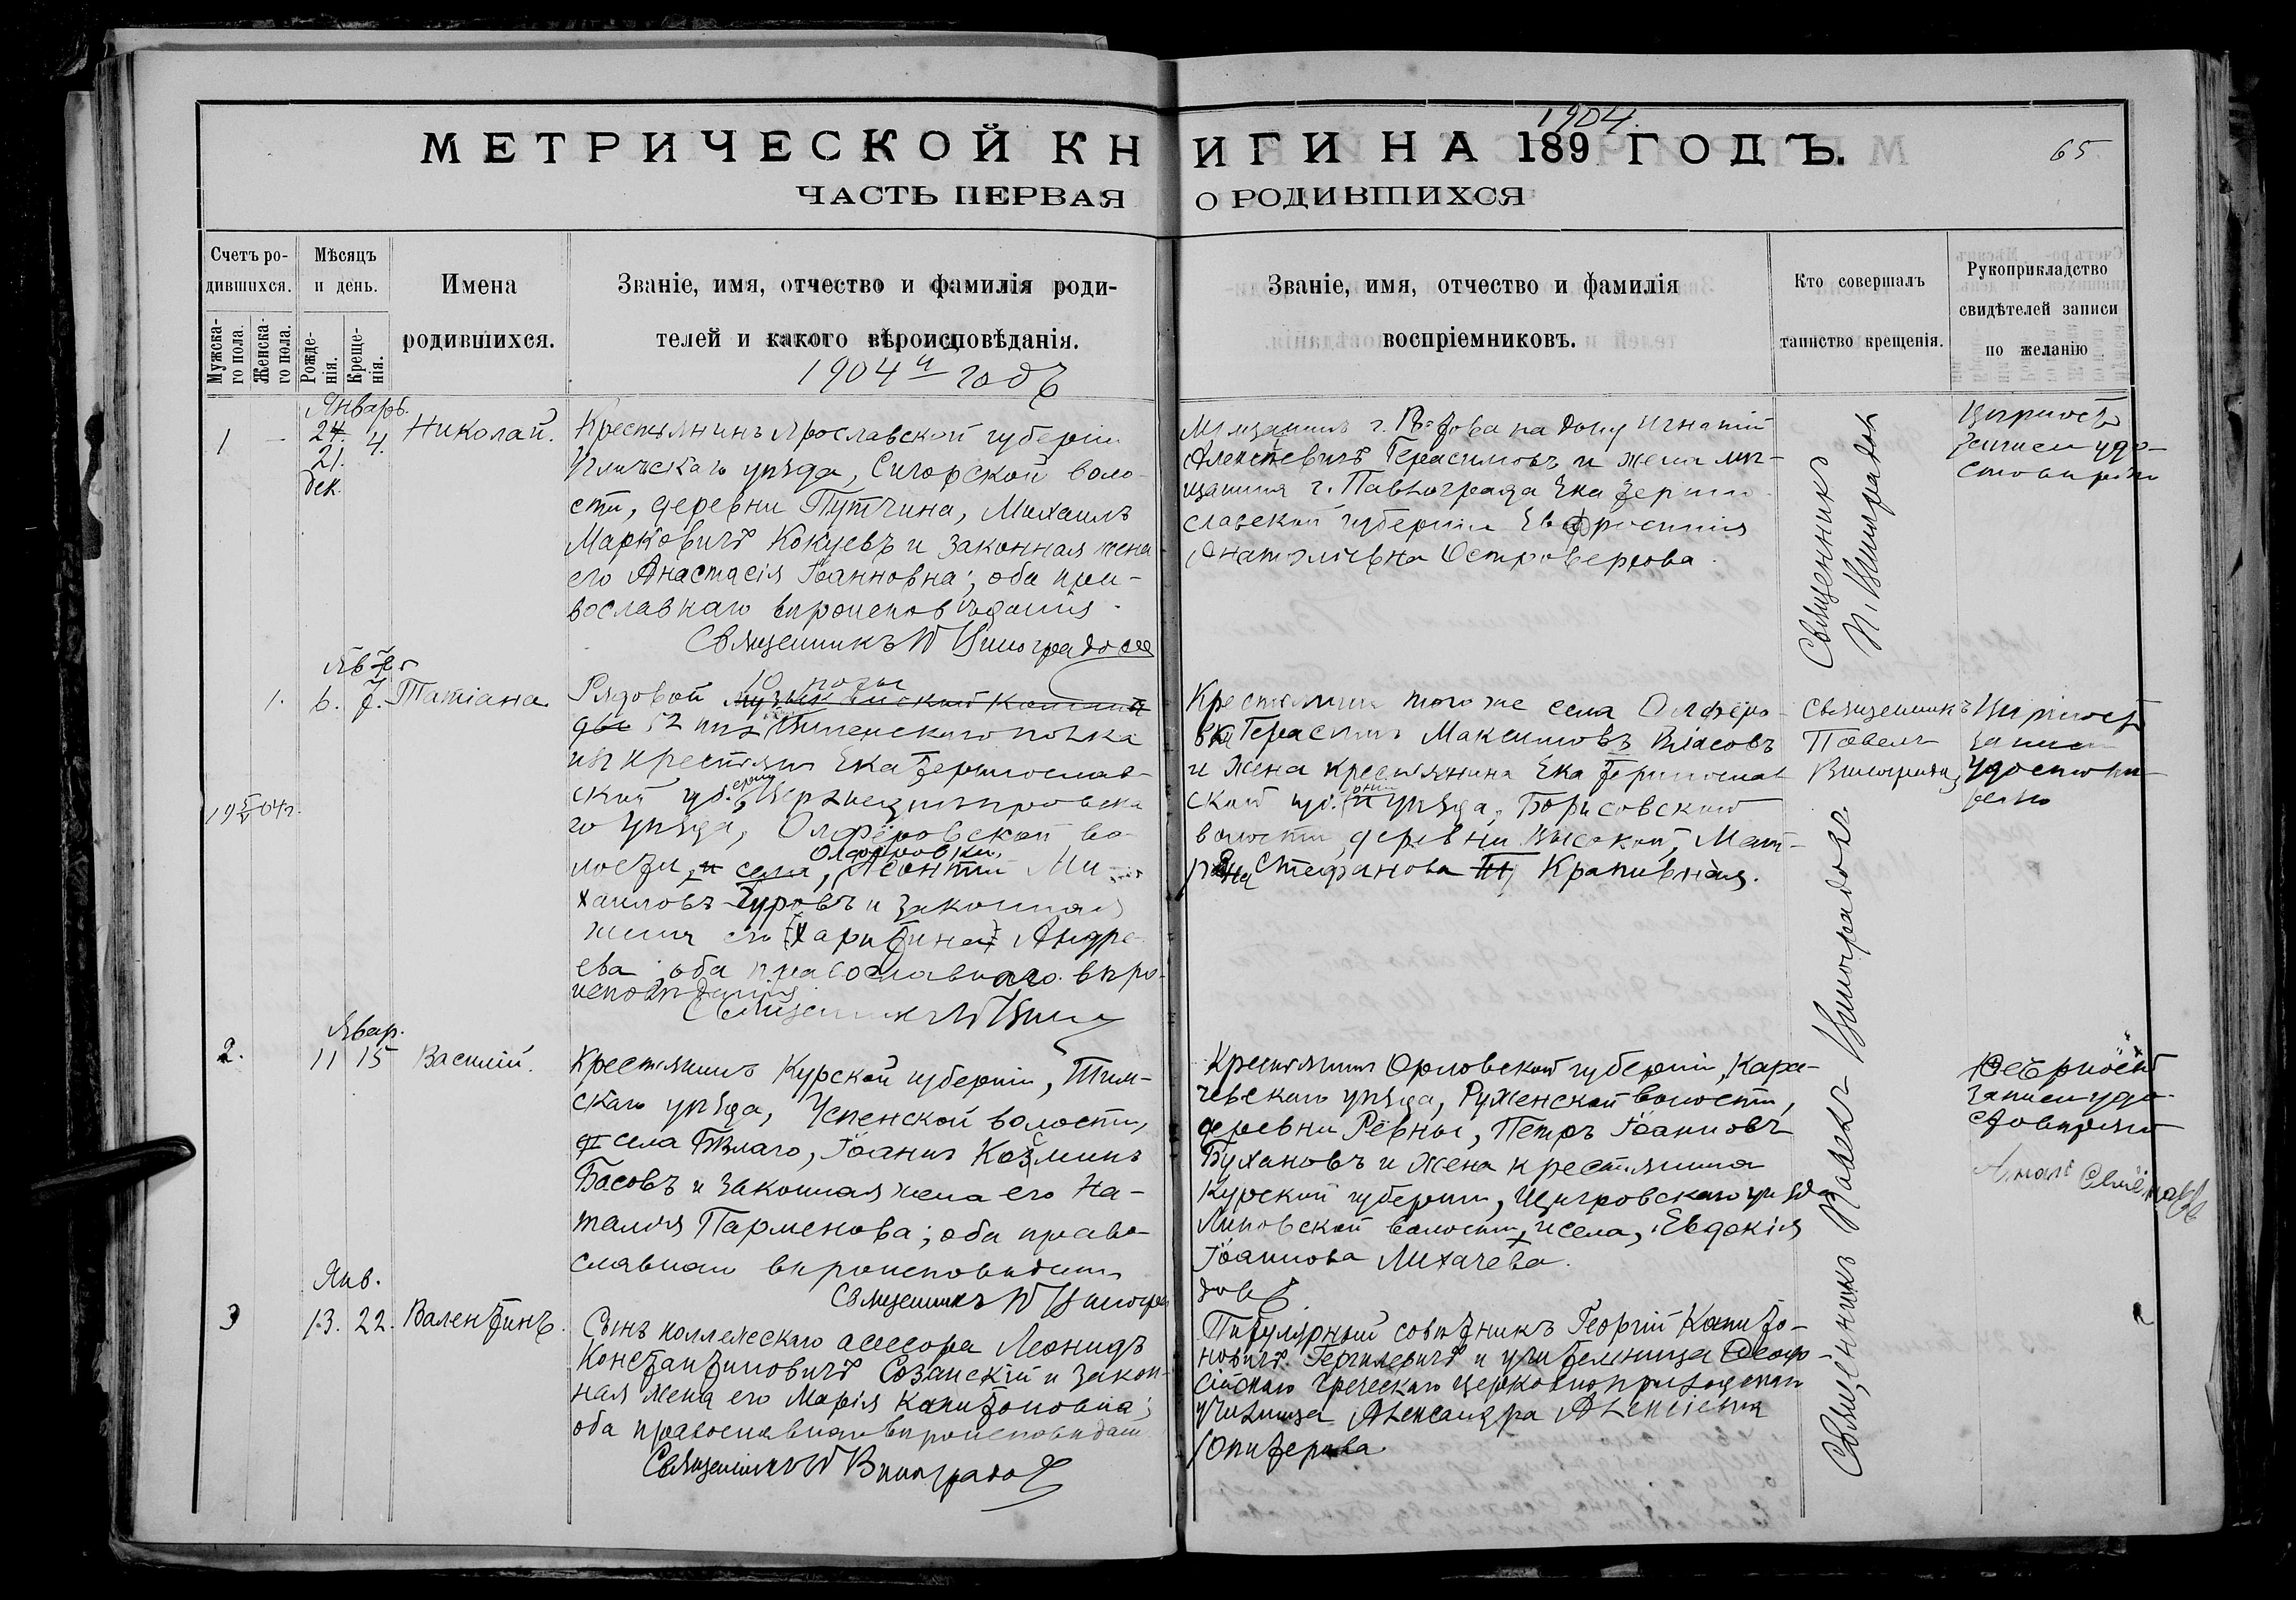 1904.
МЕТРИЧЕСКОЙ КНИГИ НА 189 ГОДЪ.
65
ЧАСТЬ ПЕРВАЯ О РОДИВШИХСЯ
Счетъ ро-
дившихся.
Мужска-
го пола.
Женска-
го пола.
Мѣсяцъ
и день.
Рожде-
нія.
Креще-
нія.
Имена
родившихся.
Званіе, имя, отчество и фамилія роди-
телей и какого вѣроисповѣданія.
Званіе, имя, отчество и фамилія
воспріемниковъ.
Кто совершалъ
таинство крещенія.
Рукоприкладство
свидѣтелей записи
по желанію
1904й годъ
Январь.
1 – 24. 4. Николай.
21.
Дек.
Крестьянинъ Ярославской губерніи
уѣзда, Сигорской воло-
сти, деревни Путчина, Михаилъ
Марковичъ Кокуевъ и законная жена
его Анастасія Іоанновна; оба пра-
вославнаго вѣроисповѣданія.
Священникъ П Виноградовъ
Мѣщанинъ г. Ростова на Дону Игнатій
Алексѣевичъ Герасимовъ и жена мѣ-
щанина г. Павлограда Екатерино-
славской губерніи Евфросинія
Анатоліевна Островерхова.
Священникъ
П. Виноградовъ
записи удо-
стовѣряю
1. 6. 7. Татіана
Рядовой 10 роты
52 Виленскаго полка
изъ крестьянъ Екатеринослав-
ской губ. Верхнеднѣпровска-
го уѣзда, Олферовской во-
лости, села Олферовки, Леонтій Ми-
хаиловъ Туровъ и законная
жена его Харитина Андре-
ева; оба православнаго вѣро-
исповѣданія.
Крестьянинъ того же села Олферо-
вки Герасимъ Максимовъ Власовъ
и жена крестьянина Екатеринослав-
ской губ. и уѣзда, Борисовской
волости, деревни Высокой, Мат-
рона Стефанова Крапивная.
Священникъ
Павелъ
Виноградовъ
Вѣрность
записи
удостовѣ-
ряю
1904г.
Январ.
2. 11 15 Василій.
Крестьянинъ Курской губерніи, Тим-
скаго уѣзда, Успенской волости,
села Благо, Іоаннъ Козминъ
Басовъ и законная жена его На-
талія Парменова; оба право-
славнаго вѣроисповѣданія
Священникъ П Виногра
довъ
Крестьянинъ Орловской губерніи, Кара-
чевскаго уѣзда, Руженской волости,
деревни Рёвны, Петръ Іоанновъ
Бухановъ и жена крестьянина
Курской губерніи, Щигровскаго уѣзда
Липовской волости, и села, Евдокія
Іоаннова Лихачева.
Вѣрность
записи удо-
стовѣряю
Янв.
3 13. 22. Валентинъ.
Сынъ коллежскаго ассесора Леонидъ
Константиновичъ Созанскій и закон-
ная жена его Марія Капитоновна;
оба православнаго вѣроисповѣданія
Священникъ П Виноградовъ
Титулярный совѣтникъ Георгій Капито-
новичъ Гергилевичъ и учительница Ѳеодо-
сійскаго Греческаго церковноприходскаго
училища Александра Алексіевна
Юпитерова
Священникъ Павелъ Виноградовъ